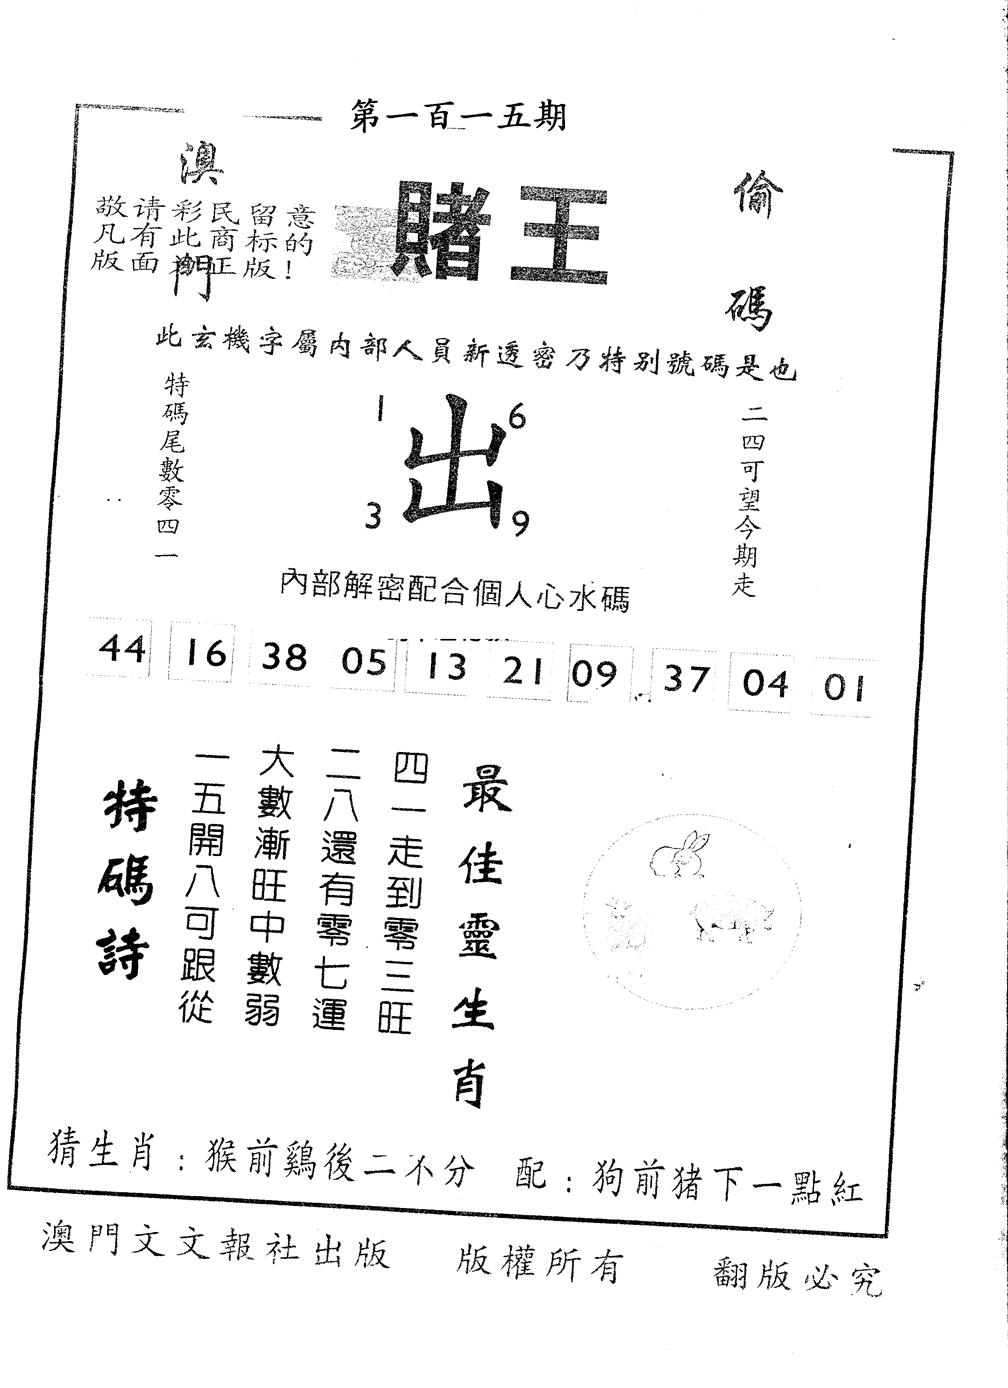 第一百一十五期
澳門
賭王
偷碼
敬请彩民留意
凡有此商标的
版面為正版!
此玄機字屬内部人員新透密乃特别號碼是也
特碼尾數零四一
1
6
出
3
9
二四可望今期走
內部解密配合個人心水碼
44 16 38 05 13 21 09 37 04 01
最佳靈生肖
四一走到零三旺
二八還有零七運
大數漸旺中數弱
一五開八可跟從
特碼詩
猜生肖:猴前鷄後二不分 配:狗前猪下一點紅
澳門文文報社出版 版權所有 翻版必究